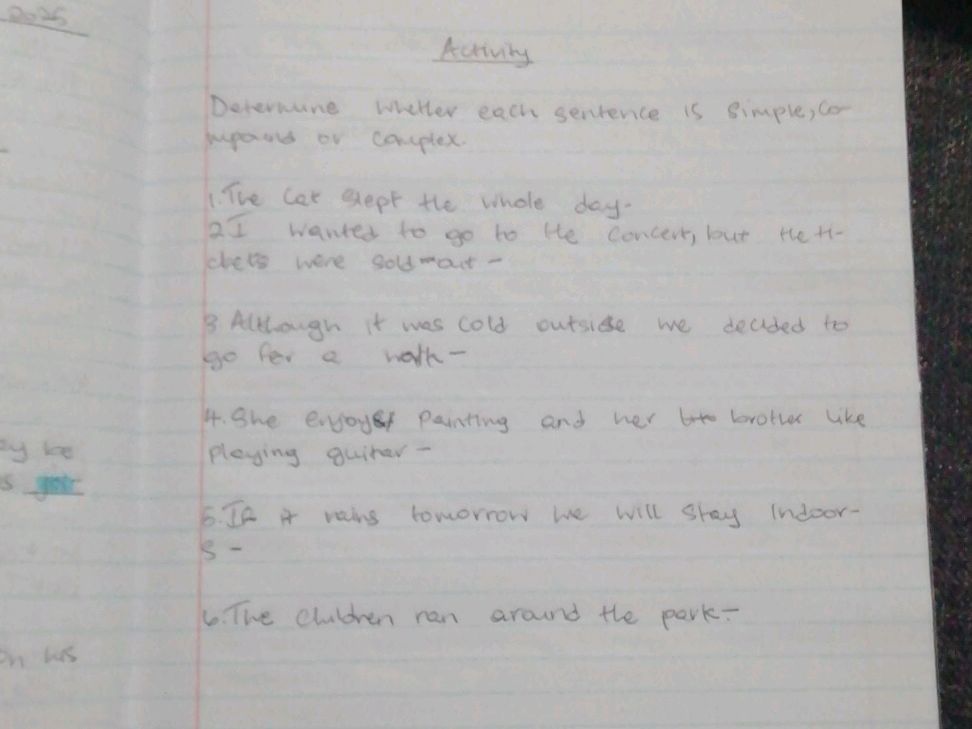 2025
Activity
Determine whether each sentence is simple, co-
mpound or complex.
1. The cat slept the whole day-
2 I wanted to go to the concert, but the ti-
ckets were sold out -
3 Although it was cold outside we decided to
go for a walk -
4. She enjoys painting and her brother like
playing guitar -
5. If it rains tomorrow we will stay indoor-
s -
6. The children ran around the park -